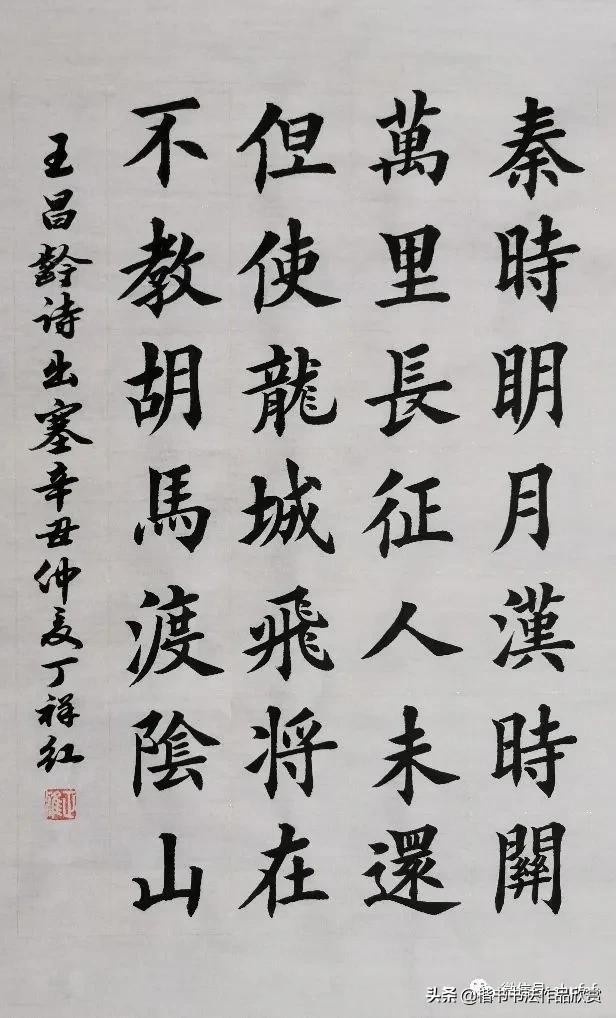 秦時明月漢時關
萬里長征人未還
但使龍城飛将在
不教胡馬渡陰山
王昌齡诗出塞辛丑仲夏丁祥红
头条 @楷书书法作品欣赏